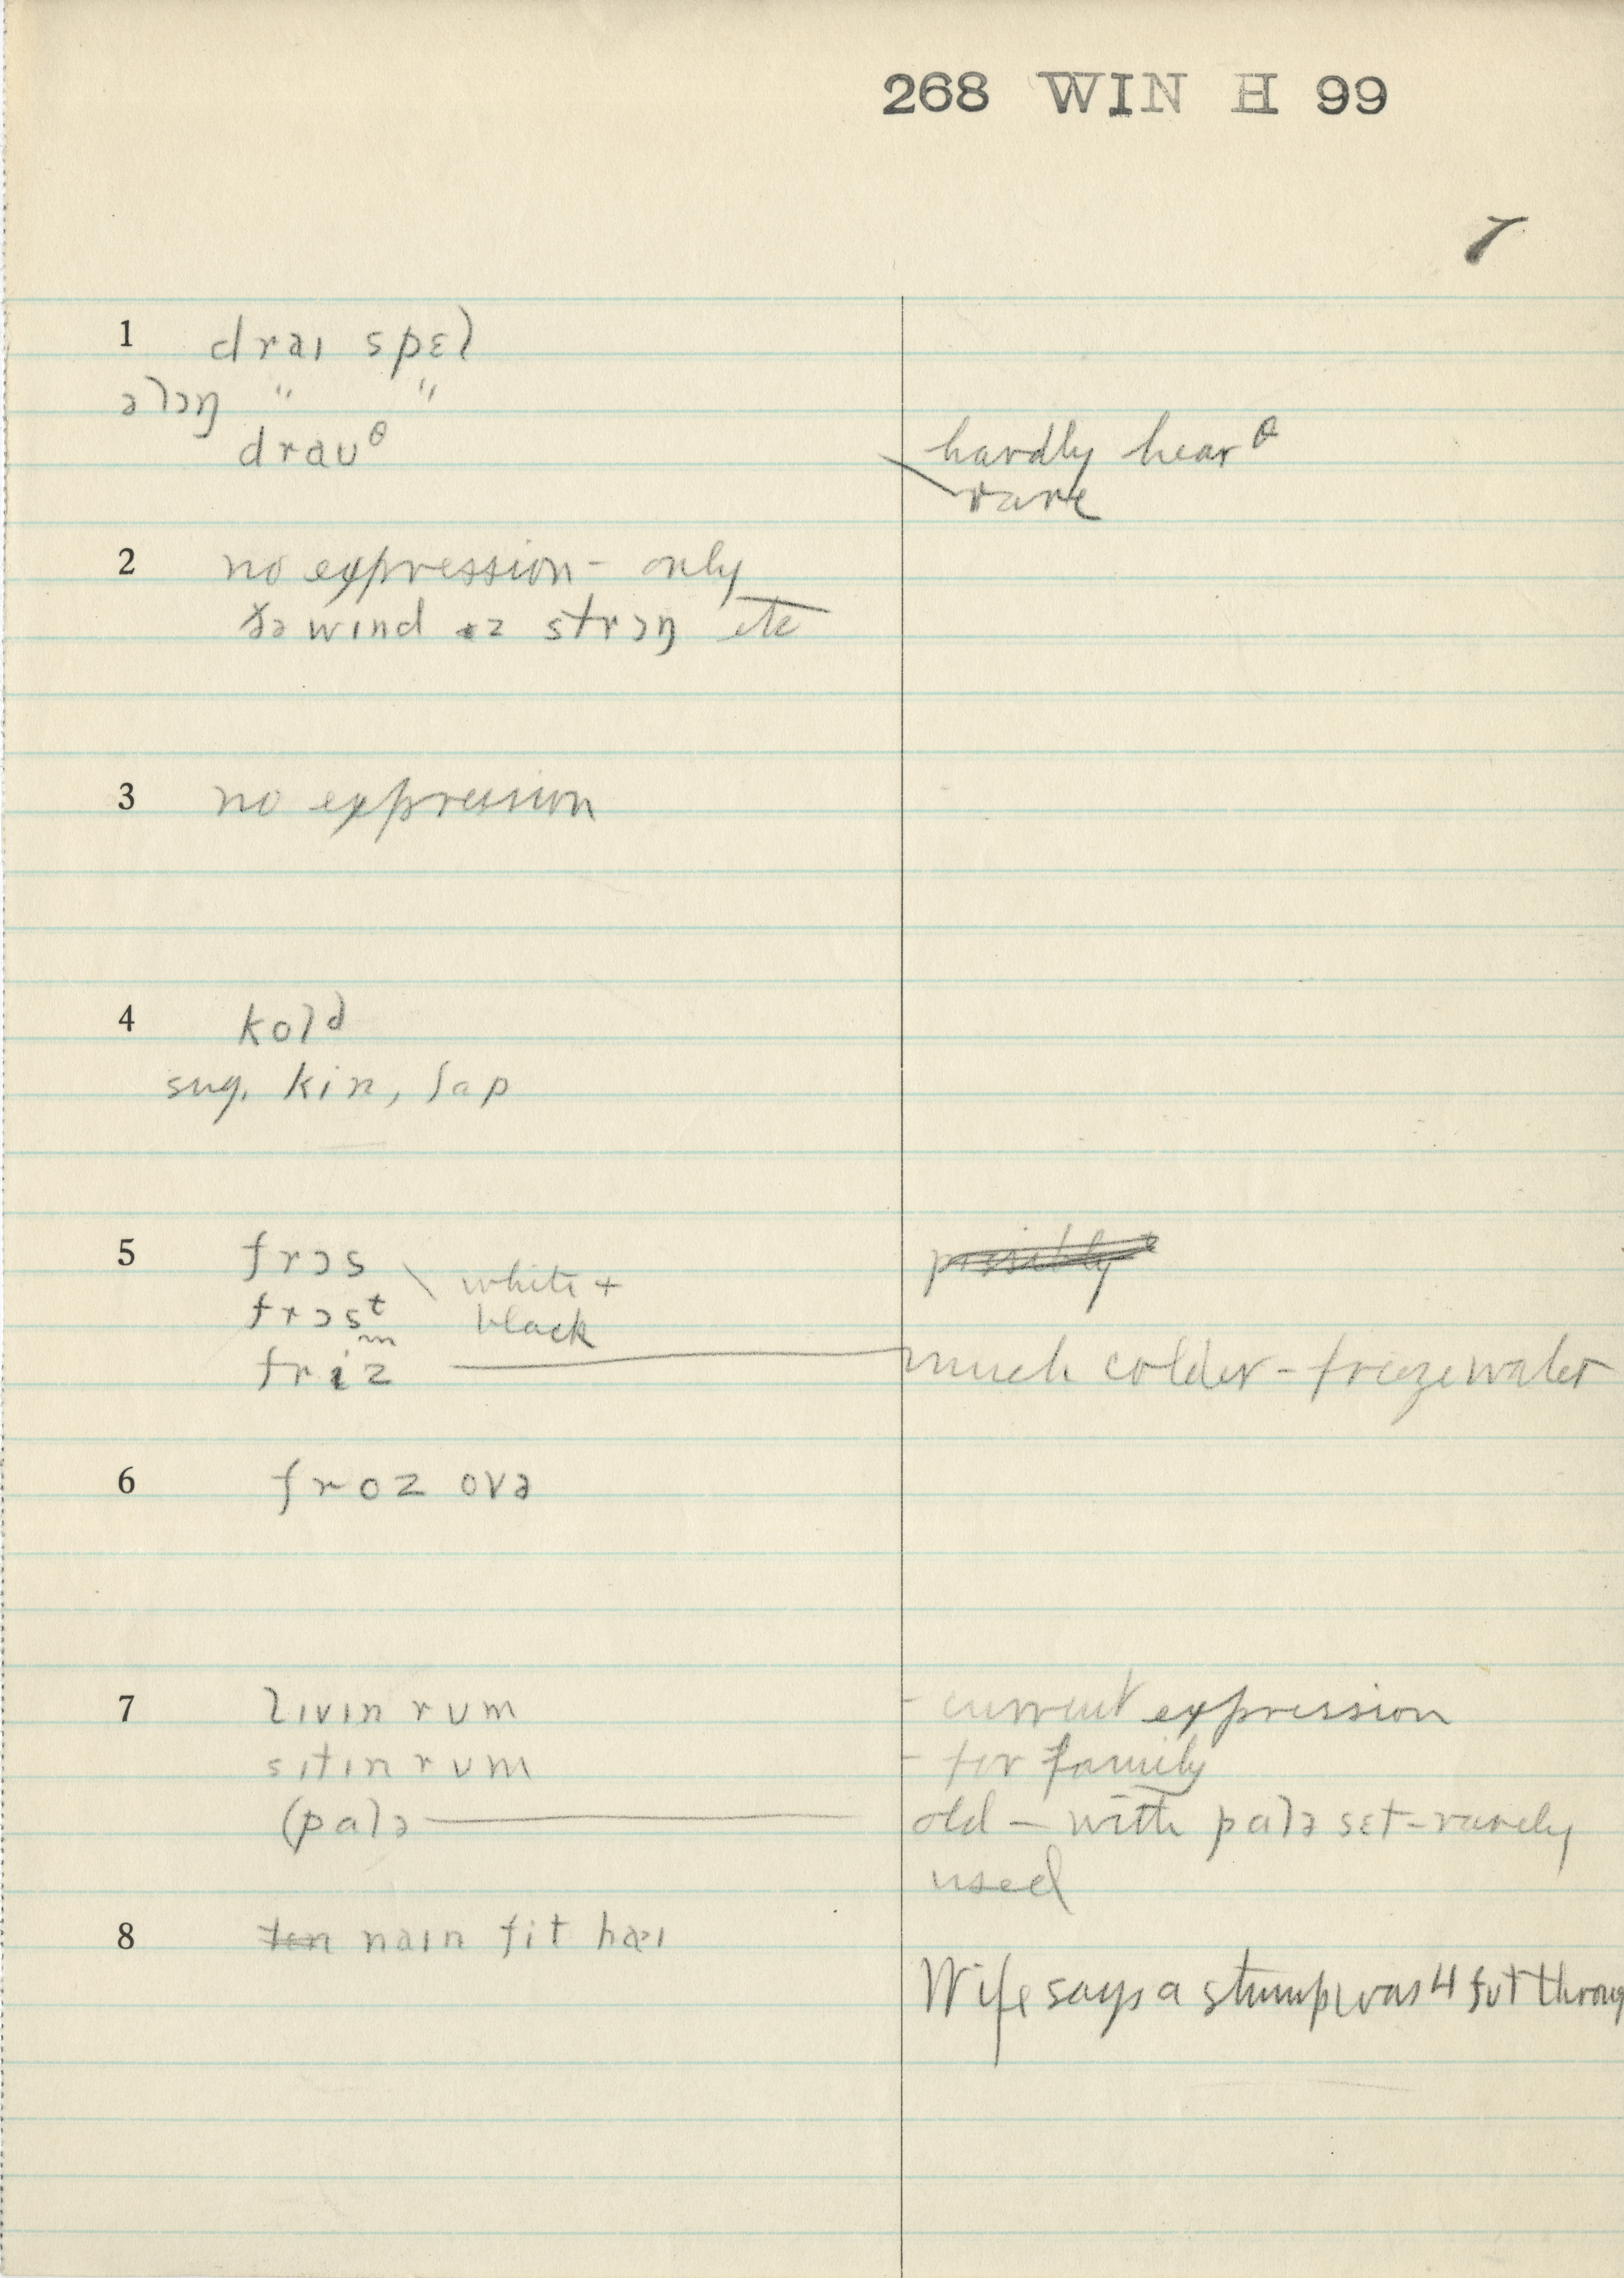 268 WIN H 99
7
1 draɪ spɛl
əlɔŋ " "
draʊᶿ hardly hear θ
rare
2 no expression - only
ðə wɪnd ɪz strɔŋ etc
3 no expression
4 kold
sug. kin, sap
5 frɔs white + possibly
frɔsᵗ black
friz much colder - freeze water
6 froz ovə
7 lɪvɪn rum - current expression
sɪtɪn rum - for family
(palə old - with palə sɛt - rarely
used
8 ten naɪn fit haɪ
Wife says a stump was 4 fʊt throug